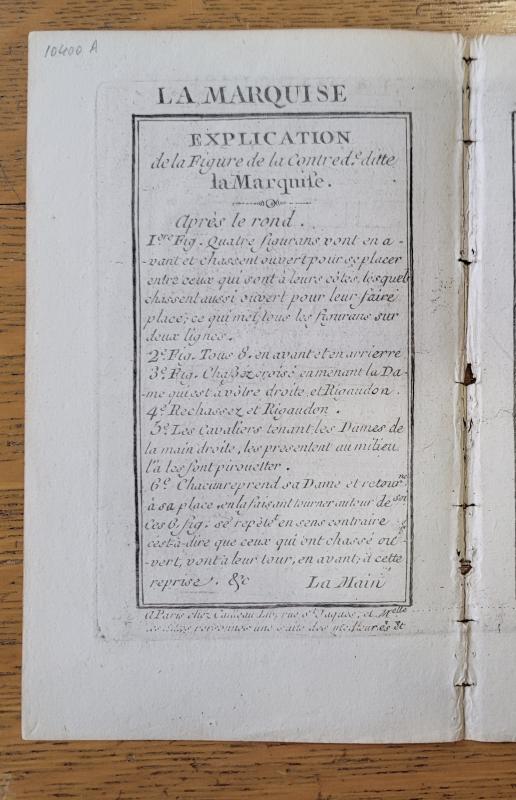 10400 A
LA MARQUISE
EXPLICATION
de la Figure de la Contred.e ditte
la Marquise.
Après le rond.
1ere Fig. Quatre figurans vont en a-
vant et chassent ouvert pour se placer
entre ceux qui sont à leurs côtés, lesquels
chassent aussi ouvert pour leur faire
place; ce qui met tous les figurans sur
deux lignes.
2e. Fig. Tous 8. en avant et en arrierre
3e. Fig. Chassez croisé en menant la Da-
me qui est à vôtre droite, et Rigaudon.
4e Rechassez et Rigaudon.
5e. Les Cavaliers tenant les Dames de
la main droite, les presentent au milieu
là les font pirouetter.
6e. Chacun reprend sa Dame et retourne
à sa place en la faisant tourner autour de soi
Ces 6 fig. se repètet en sens contraire
c'est-à-dire que ceux qui ont chassé ou-
vert, vont à leur tour, en avant; à cette
reprise. &c La Main
A Paris chez Lib. rue St. Jaques, et Melle
personnes une suite des